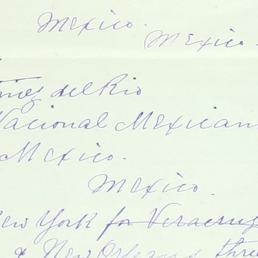 Mexico.
Mexico.
del Rio
Nacional Mexican
Mexico.
Mexico.
New York for Veracruz
& New Orleans thre